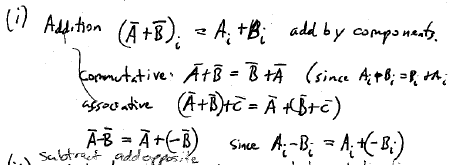 (i) Addition (A̅+B̅)ᵢ = Aᵢ + Bᵢ add by components.
commutative: A̅+B̅ = B̅+A̅ (since Aᵢ+Bᵢ=Bᵢ+Aᵢ
associative (A̅+B̅)+C̅ = A̅+(B̅+C̅)
A̅-B̅ = A̅+(-B̅) since Aᵢ-Bᵢ = Aᵢ+(-Bᵢ)
subtract, add opposite